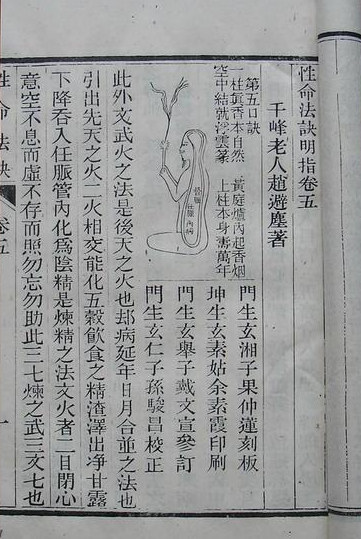 性命法訣明指卷五
千峰老人趙避塵著
第五口訣
一柱真香本自然
黃庭爐內起香烟
空中結就浮雲篆
上柱本身壽萬年
門生玄湘子果仲蓮刻板
坤生玄素姑余素霞印刷
門生玄舉子戴文宣參訂
門生玄仁子孫駿昌校正
此外文武火之法是後天之火也却病延年日月合並之法也
引出先天之火二火相交能化五穀飲食之精渣滓出净甘露
下降吞入任脈管內化為陰精是煉精之法文火者二目閉心
意空不息而虛不存而照勿忘勿助此三七煉之武三文七也
性命法訣
卷五
一